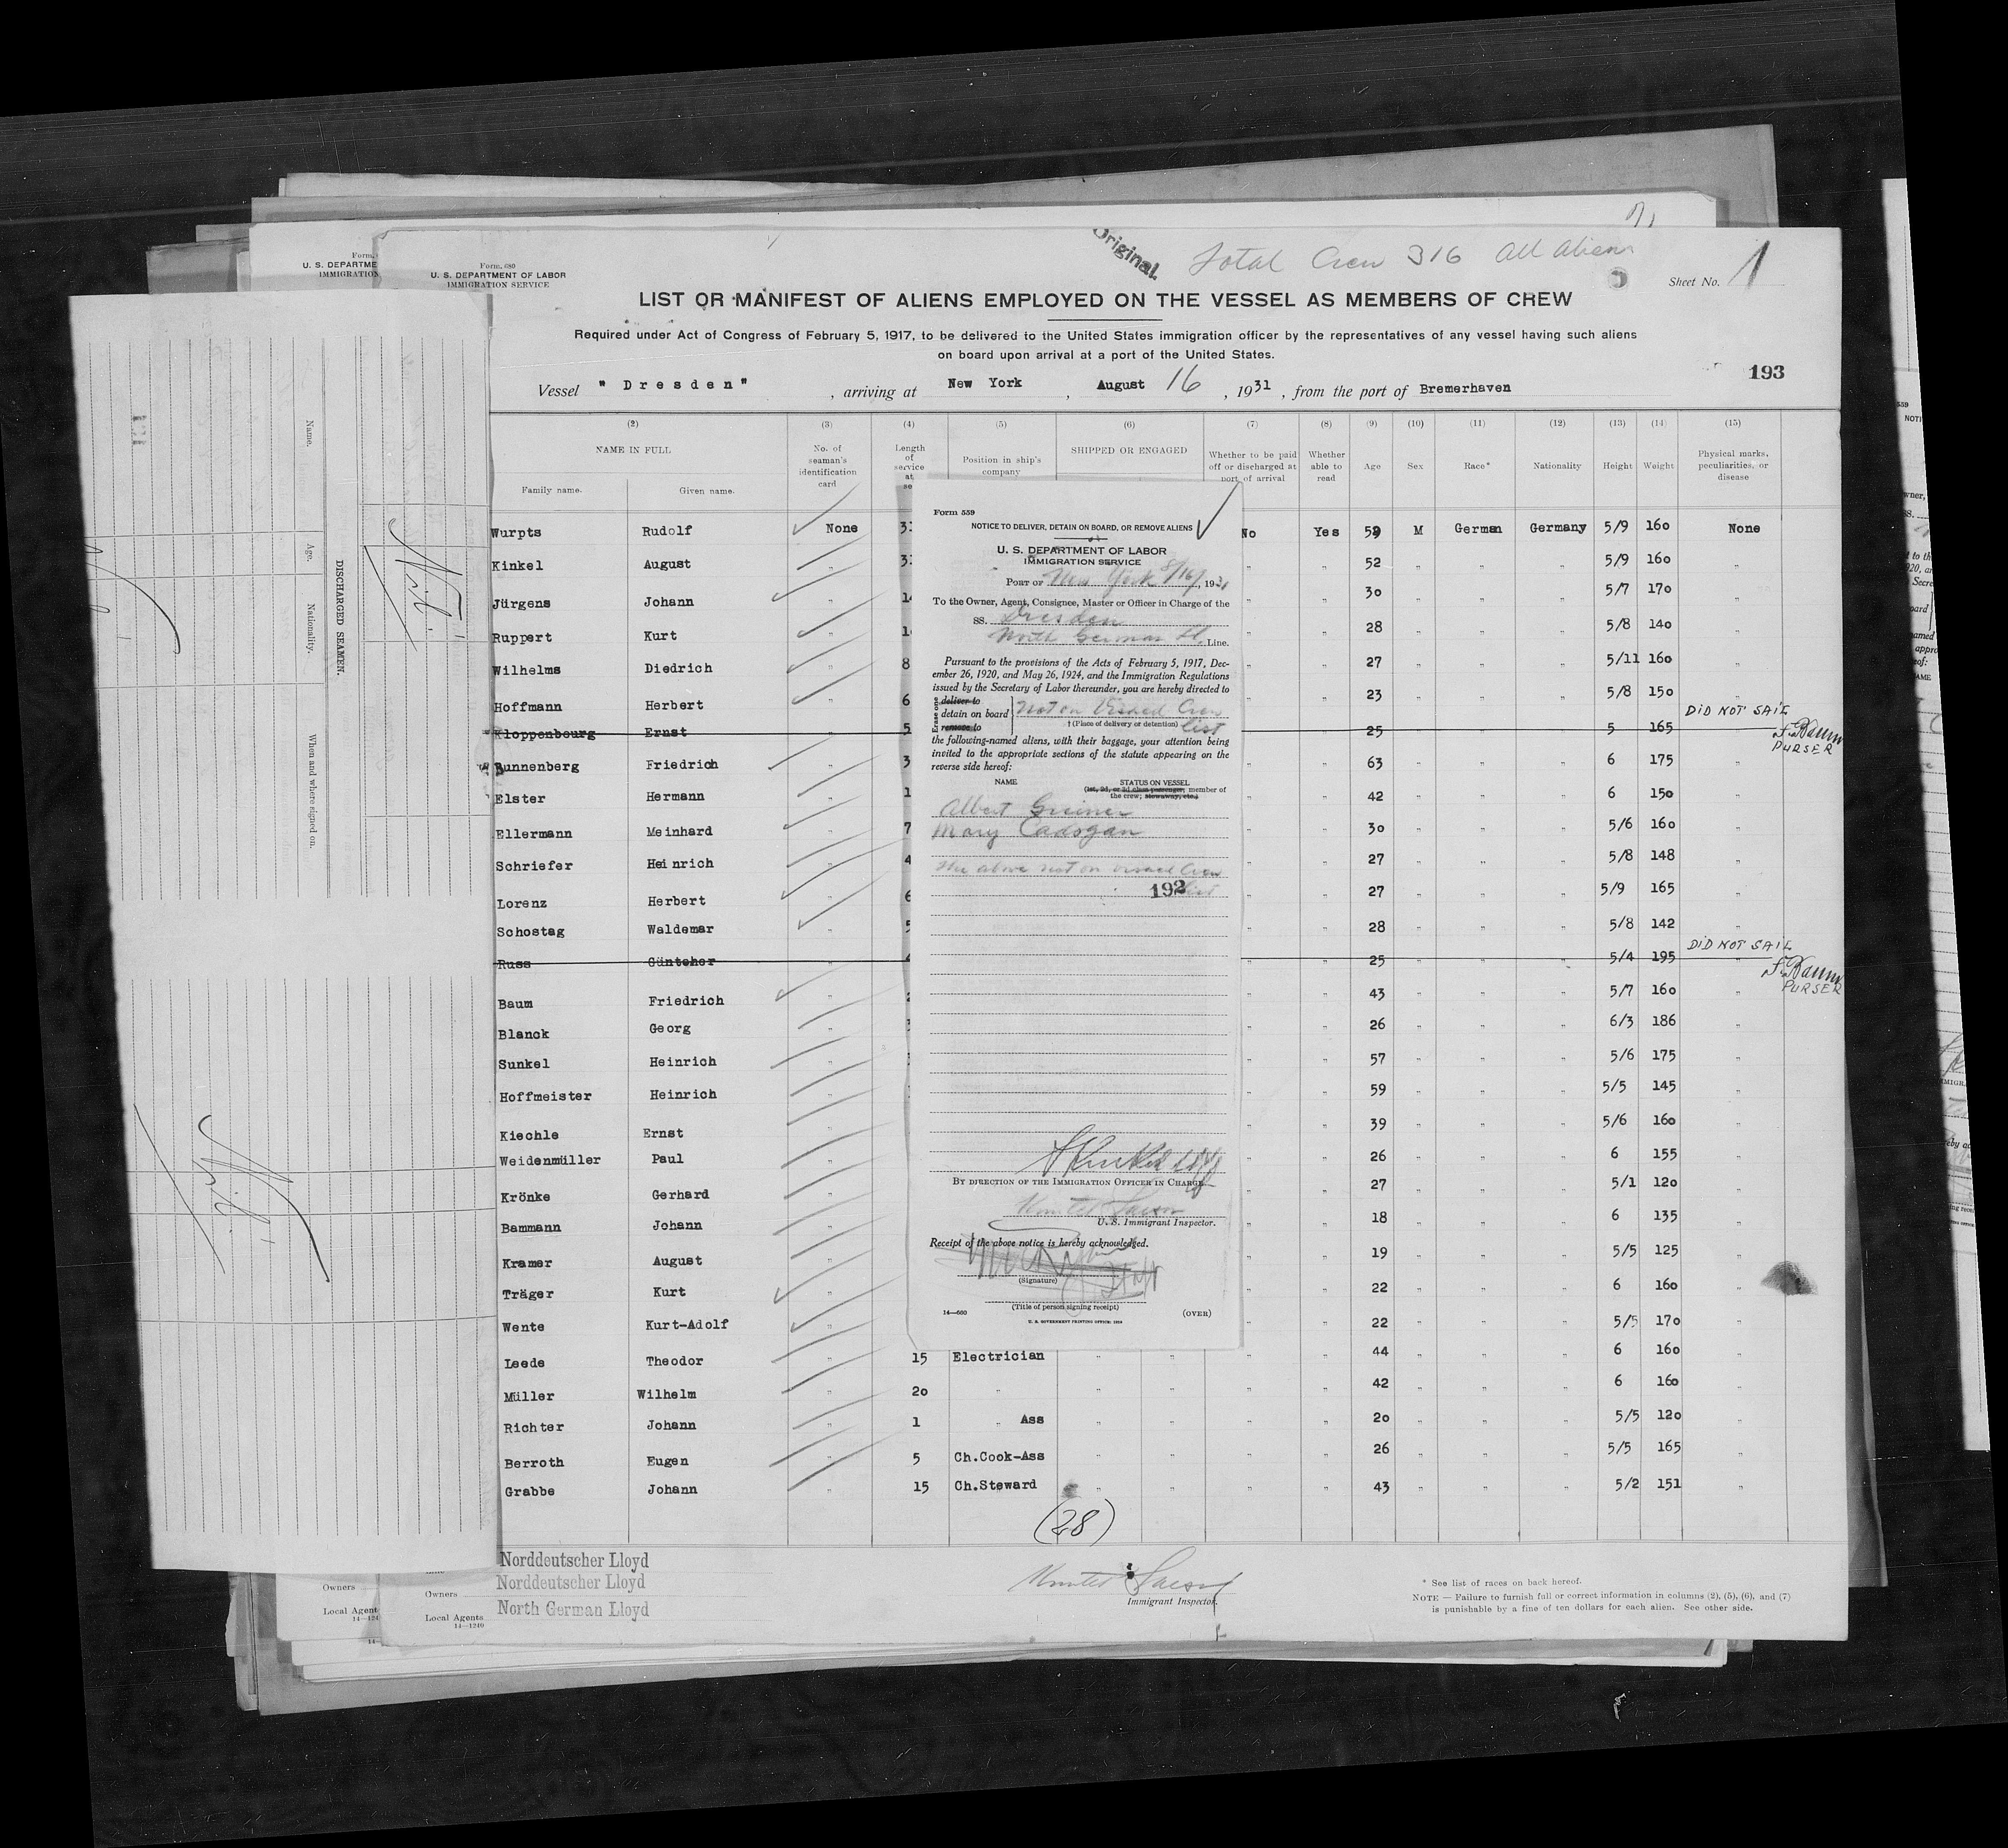 Original
Total Crew 316 All Aliens
Form 680
U. S. DEPARTMENT OF LABOR
IMMIGRATION SERVICE
Form
U. S. DEPARTME
IMMIGRATION
Sheet No. 1
LIST OR MANIFEST OF ALIENS EMPLOYED ON THE VESSEL AS MEMBERS OF CREW
Required under Act of Congress of February 5, 1917, to be delivered to the United States immigration officer by the representatives of any vessel having such aliens
on board upon arrival at a port of the United States.
193
Vessel "Dresden", arriving at New York, August 16, 1931, from the port of Bremerhaven
(2) (3) (4) (5) (6) (7) (8) (9) (10) (11) (12) (13) (14) (15)
NAME IN FULL
Family name. Given name.
No. of seaman's identification card
Length of service at se
Position in ship's company
SHIPPED OR ENGAGED
Whether to be paid off or discharged at port of arrival
Whether able to read
Age
Sex
Race*
Nationality
Height
Weight
Physical marks, peculiarities, or disease
Wurpts Rudolf None No Yes M German Germany 5/9 160 None
Kinkel August " " " 52 " " " 5/9 160 "
Jürgens Johann " " " 30 " " " 5/7 170 "
Ruppert Kurt " " " 28 " " " 5/8 140 "
Wilhelms Diedrich " 8 " " 27 " " " 5/11 160 "
Hoffmann Herbert " 6 " " 23 " " " 5/8 150 "
Kloppenbourg Ernst " 5 " " 25 " " " 5 165 " DID NOT SAIL
F. Baum
PURSER
Bunnenberg Friedrich " 3 " " 63 " " " 6 175 "
Elster Hermann " 1 " " 42 " " " 6 150 "
Ellermann Meinhard " 7 " " 30 " " " 5/6 160 "
Schriefer Heinrich " 4 " " 27 " " " 5/8 148 "
Lorenz Herbert " 6 " " 27 " " " 5/9 165 "
Schostag Waldemar " 5 " " 28 " " " 5/8 142 "
Russ Günteher " " " 25 " " " 5/4 195 " DID NOT SAIL
F. Baum
PURSER
Baum Friedrich " " " 43 " " " 5/7 160 "
Blanck Georg " " " 26 " " " 6/3 186 "
Sunkel Heinrich " " " 57 " " " 5/6 175 "
Hoffmeister Heinrich " " " 59 " " " 5/5 145 "
Kiechle Ernst " " " 39 " " " 5/6 160 "
Weidenmüller Paul " " " 26 " " " 6 155 "
Krönke Gerhard " " " 27 " " " 5/1 120 "
Bammann Johann " " " 18 " " " 6 135 "
Kramer August " " " 19 " " " 5/5 125 "
Träger Kurt " " " 22 " " " 6 160 "
Wente Kurt-Adolf " " " 22 " " " 5/5 170 "
Leede Theodor " 15 Electrician " " " " 44 " " " 6 160 "
Müller Wilhelm " 20 " " " " " 42 " " " 6 160 "
Richter Johann " 1 " Ass " " " " 20 " " " 5/5 120 "
Berroth Eugen " 5 Ch.Cook-Ass " " " " 26 " " " 5/5 165 "
Grabbe Johann " 15 Ch.Steward " " " " 43 " " " 5/2 151 "
(28)
Norddeutscher Lloyd
Owners Norddeutscher Lloyd
Local Agents North German Lloyd
14—1240
Owners
Local Agent
14—124
Immigrant Inspector.
* See list of races on back hereof.
NOTE — Failure to furnish full or correct information in columns (2), (5), (6), and (7)
is punishable by a fine of ten dollars for each alien. See other side.
Form 559
NOTICE TO DELIVER, DETAIN ON BOARD, OR REMOVE ALIENS
U. S. DEPARTMENT OF LABOR
IMMIGRATION SERVICE
PORT OF New York 8/16/, 1931
To the Owner, Agent, Consignee, Master or Officer in Charge of the
SS. Dresden
North German Ll. Line.
Pursuant to the provisions of the Acts of February 5, 1917, Dec-
ember 26, 1920, and May 26, 1924, and the Immigration Regulations
issued by the Secretary of Labor thereunder, you are hereby directed to
Erase one
deliver to
detain on board
remove to
Not on Visaed Crew
†(Place of delivery or detention) list
the following-named aliens, with their baggage, your attention being
invited to the appropriate sections of the statute appearing on the
reverse side hereof:
NAME STATUS ON VESSEL
(1st, 2d, or 3d class passenger; member of
the crew; stowaway, etc.)
Albert Greiner
Mary Cadogan
The above not on visaed Crew
list
192
BY DIRECTION OF THE IMMIGRATION OFFICER IN CHARGE
U. S. Immigrant Inspector.
Receipt of the above notice is hereby acknowledged.
(Signature)
(Title of person signing receipt)
14—680 (OVER)
U. S. GOVERNMENT PRINTING OFFICE: 1929
DISCHARGED SEAMEN.
Name.
Age.
Nationality.
When and where signed on.
Nil
Nil